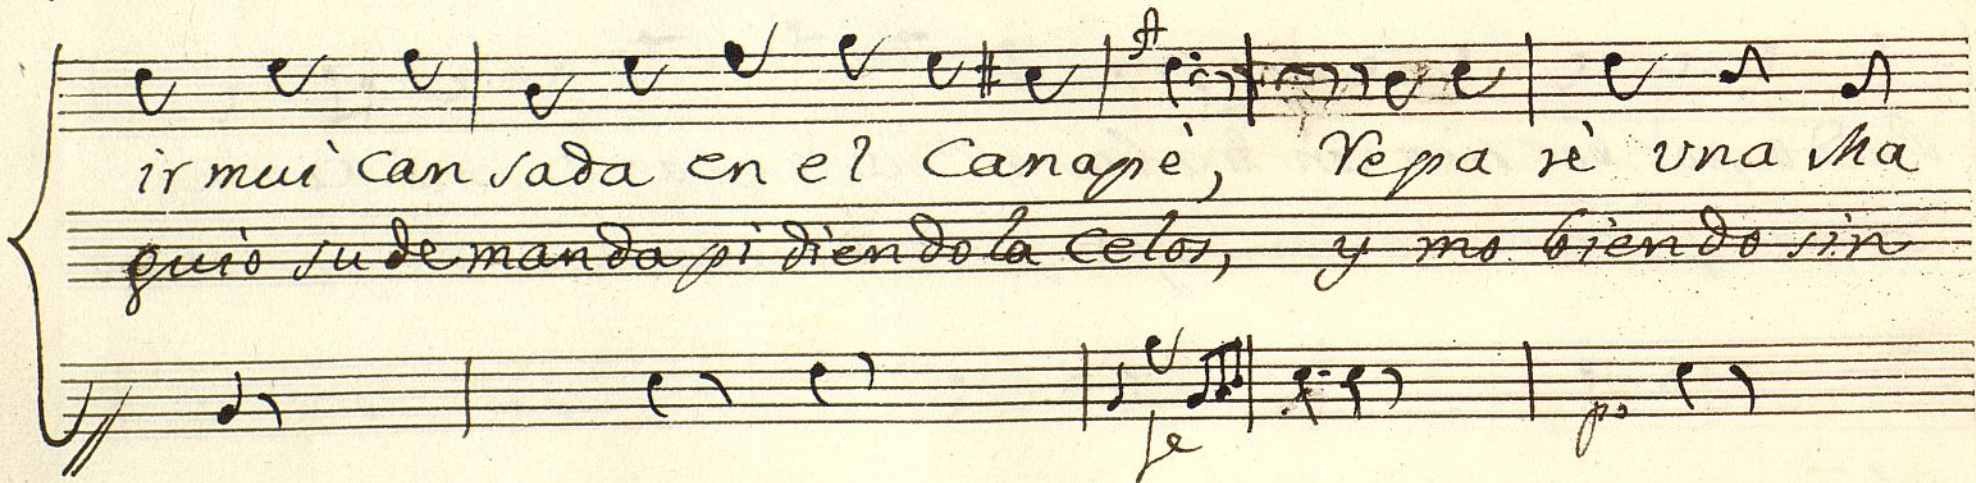 ir mui can sada en el Canapè, Repa rè una Ma
guiò su de manda pi diendo la Celos, y mo biendo sin
fe
po